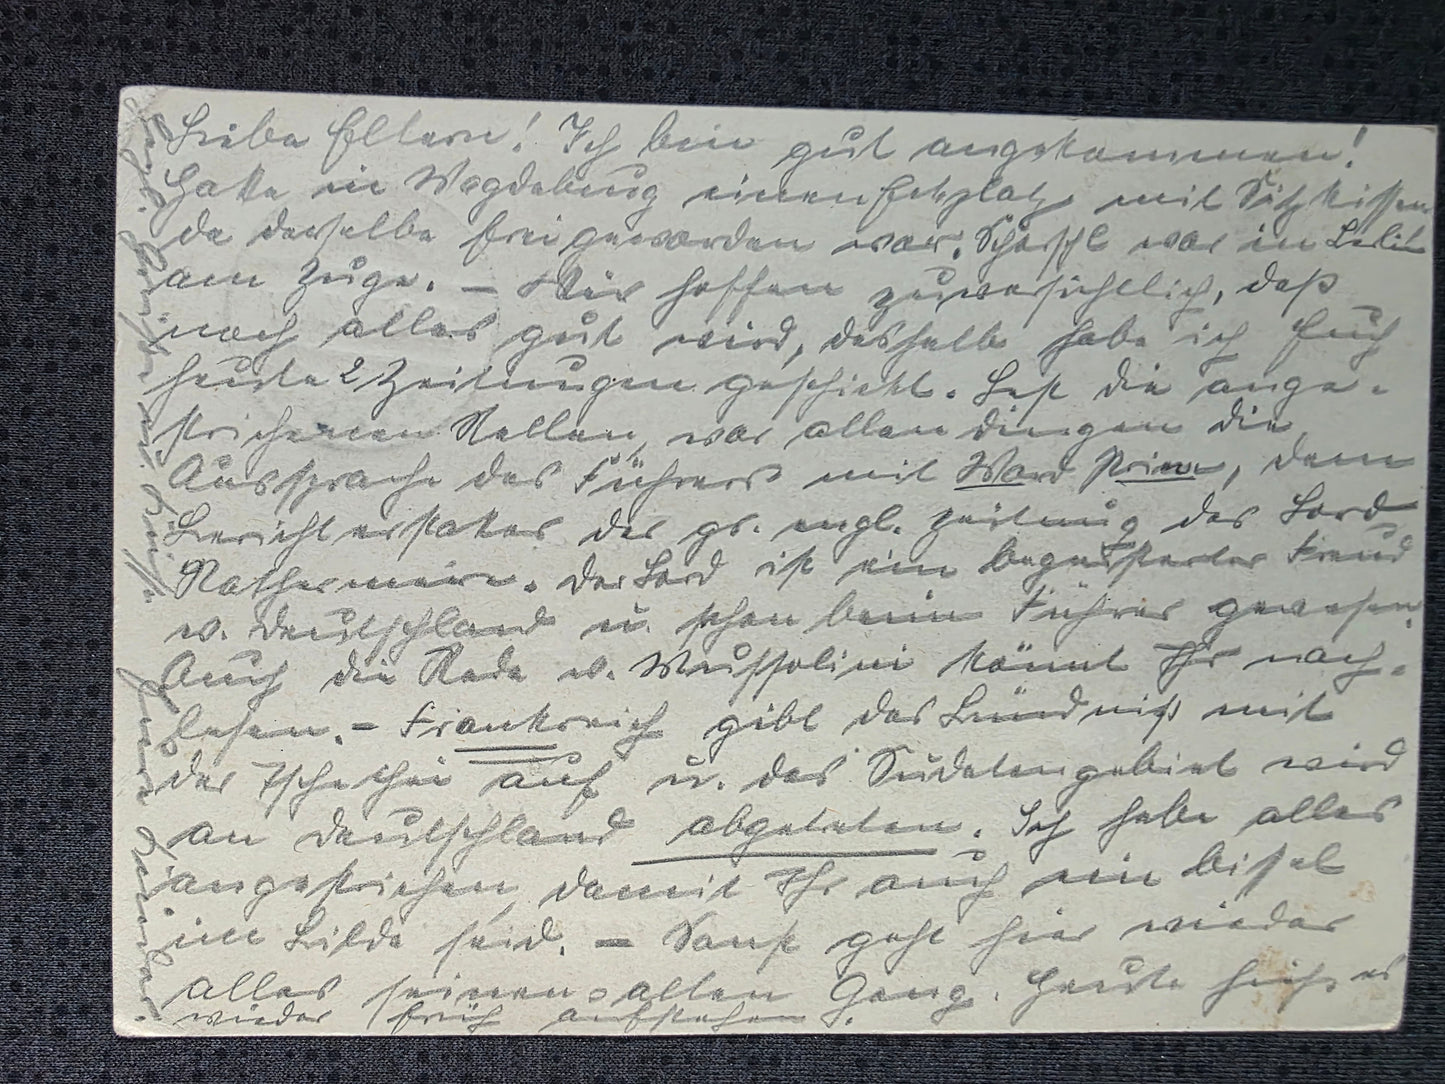 Liebe Eltern! Ich bin gut angekommen!
Hatte in Magdeburg einen Eckplatz mit Sitzkissen
da derselbe frei geworden war. war in Berlin
am Zuge. – Wir hoffen zuversichtlich, daß
noch alles gut wird, deshalb habe ich Euch
heute 2 Zeitungen geschickt. Lest die ange-
strichenen Stellen, vor allen Dingen die
Aussprache des Führers mit Ward Price, dem
Berichterstatter der gr. engl. Zeitung des Lord
Rothermere. Der Lord ist ein begeisterter Freund
v. Deutschland u. schon beim Führer gewesen.
Auch die Rede v. Mussolini könnt Ihr nach-
lesen. – Frankreich gibt das Bündniß mit
der Tschechei auf u. das Sudetengebiet wird
an Deutschland abgetreten. Ich habe alles
angestrichen, damit Ihr auch ein bissel
im Bilde seid. – Sonst geht hier wieder
alles seinen alten Gang. Heute hieß es
wieder früh aufstehen.
Herzl. Grüße u. Küsse Eure Kinder.